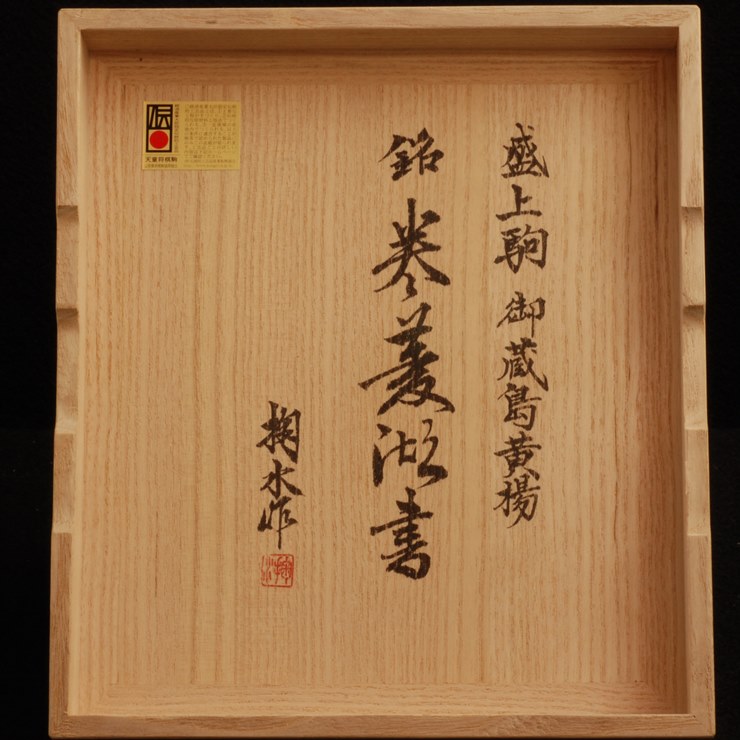 盛上駒 御蔵島黄楊
銘 巻菱湖書
掬水作
伝
天童将棋駒